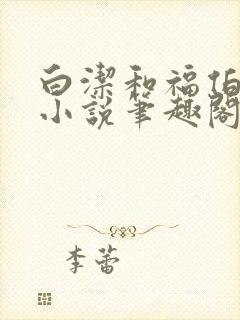 白潔和福伯
小說筆趣閣
李蕾